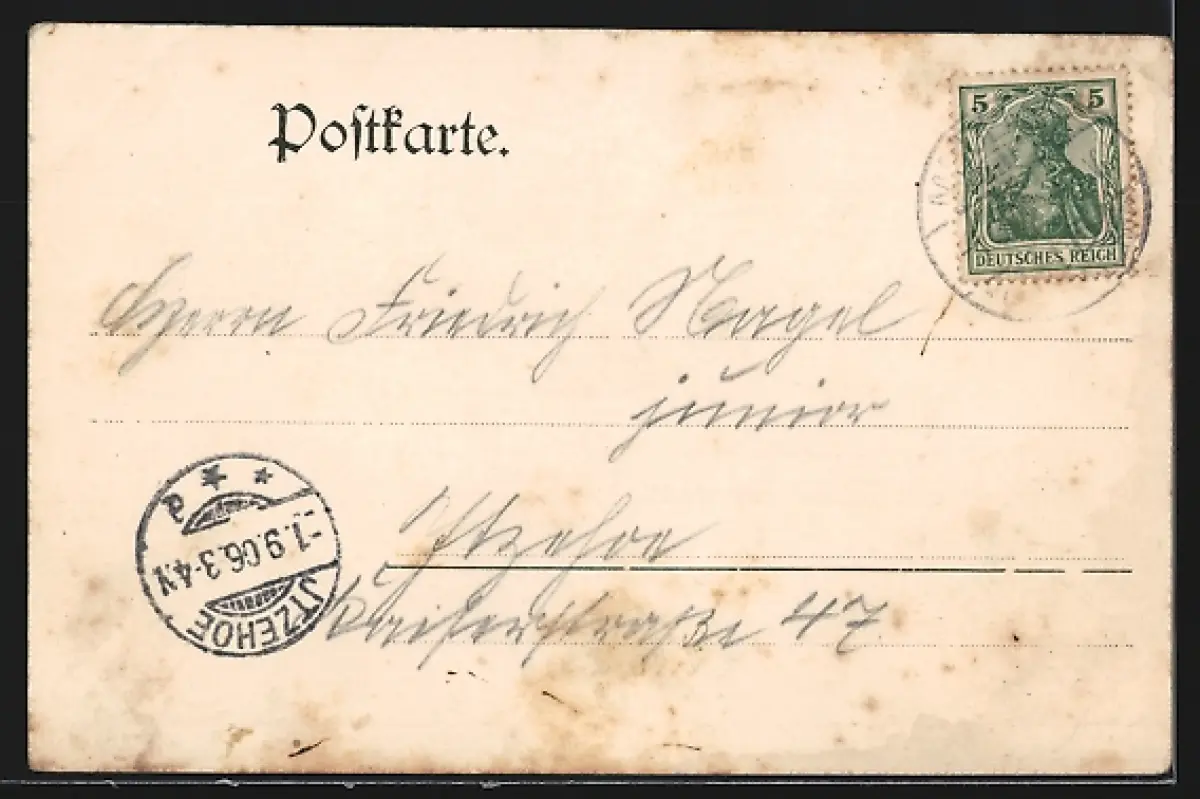 Postkarte.
5 5
DEUTSCHES REICH
Herrn Friedrich Nagel
junior
Itzehoe
Kaiserstraße 47
-1.9.06.3-4.N
ITZEHOE